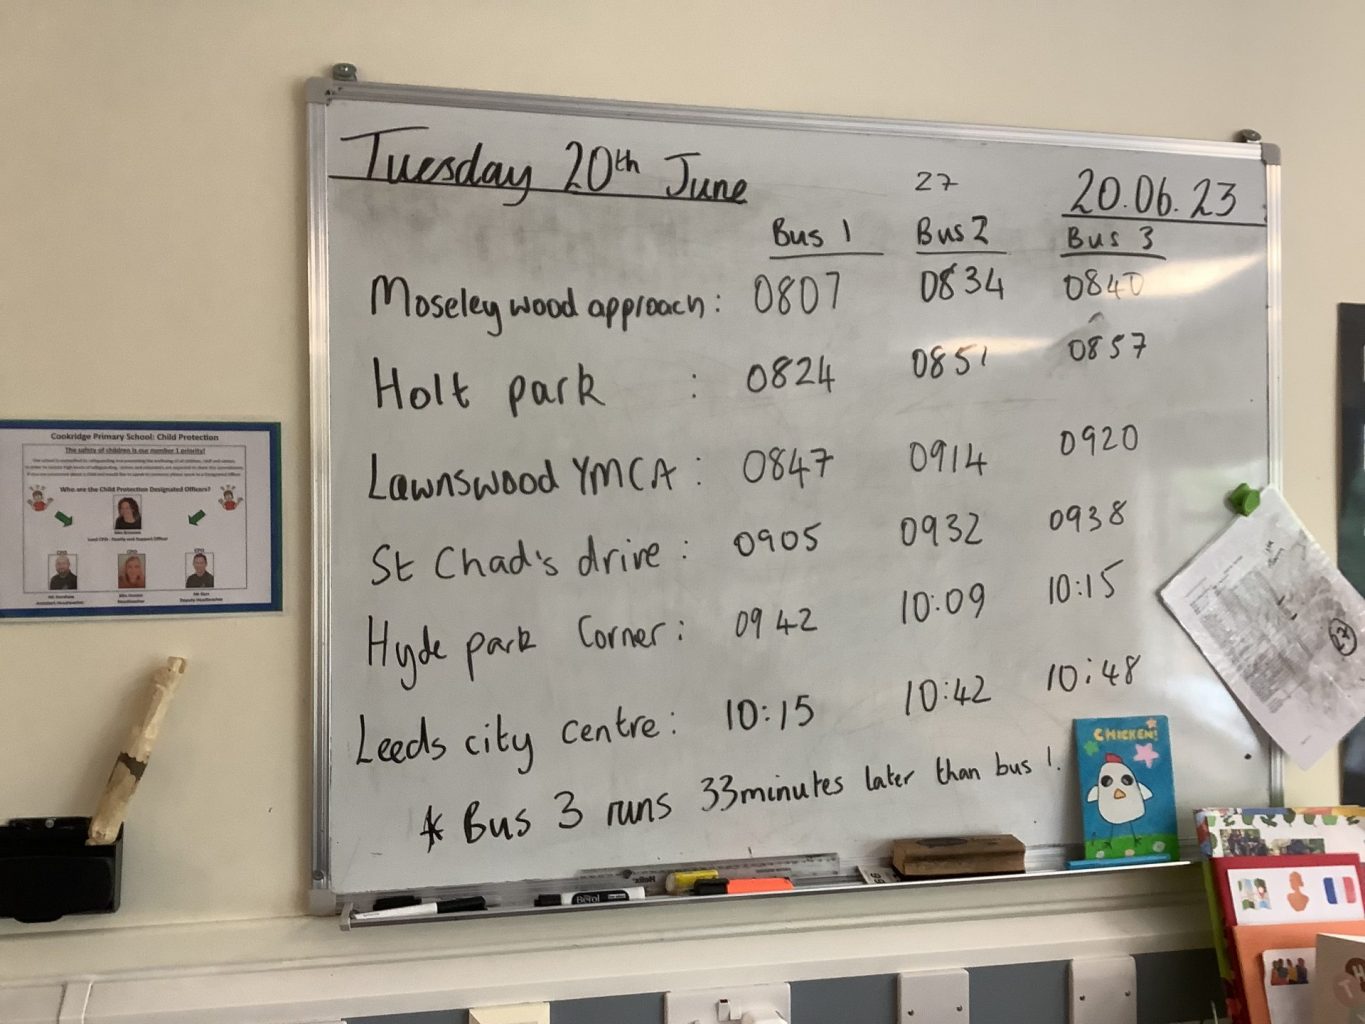 Tuesday 20th June
27
20.06.23
Bus 1 Bus 2 Bus 3
Moseley wood approach: 0807 0834 0840
Holt park : 0824 0851 0857
Lawnswood YMCA : 0847 0914 0920
St Chad's drive : 0905 0932 0938
Hyde park Corner: 0942 10:09 10:15
Leeds city centre: 10:15 10:42 10:48
* Bus 3 runs 33minutes later than bus 1.
Cookridge Primary School: Child Protection
The safety of children is our number 1 priority!
Who are the Child Protection Designated Officers?
Lead CPO - Family and Support Officer
Assistant Headteacher
Headteacher
Deputy Headteacher
CHICKEN!
Berol
Helix
27